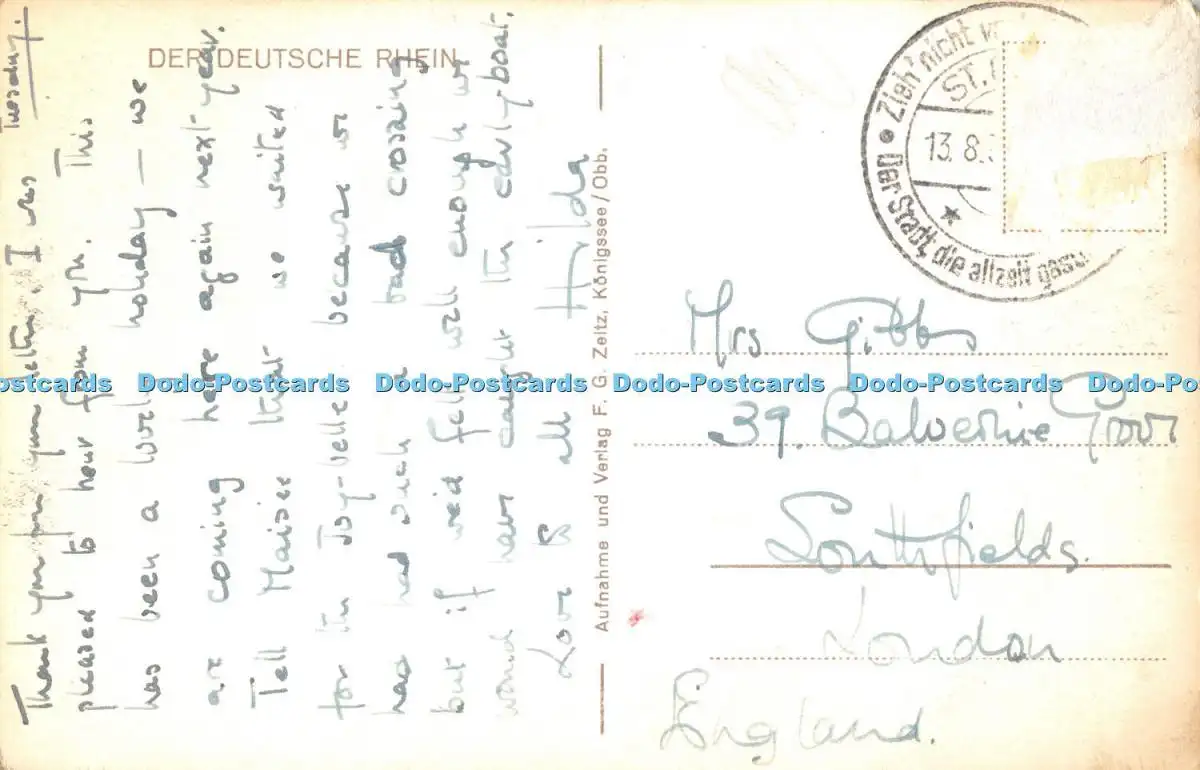 Tuesday.
Thank you for your letter. I was
pleased to hear from you. This
has been a lovely holiday — we
are coming here again next year.
Tell Maisie that we waited
for the Joy-Belle because we
had had such a bad crossing
but if we'd felt well enough we
would have caught the early boat.
Love to all Hilda
DER DEUTSCHE RHEIN
Aufnahme und Verlag F. G. Zeitz, Königssee/Obb.
Zieh' nicht
ST.
13.8.
Der Stadt, die allzeit
Mrs Gibbs
39. Balvernie Grove
Southfields.
London
England.
Dodo-Postcards Dodo-Postcards Dodo-Postcards Dodo-Postcards Dodo-Postcards Dodo-Postcards